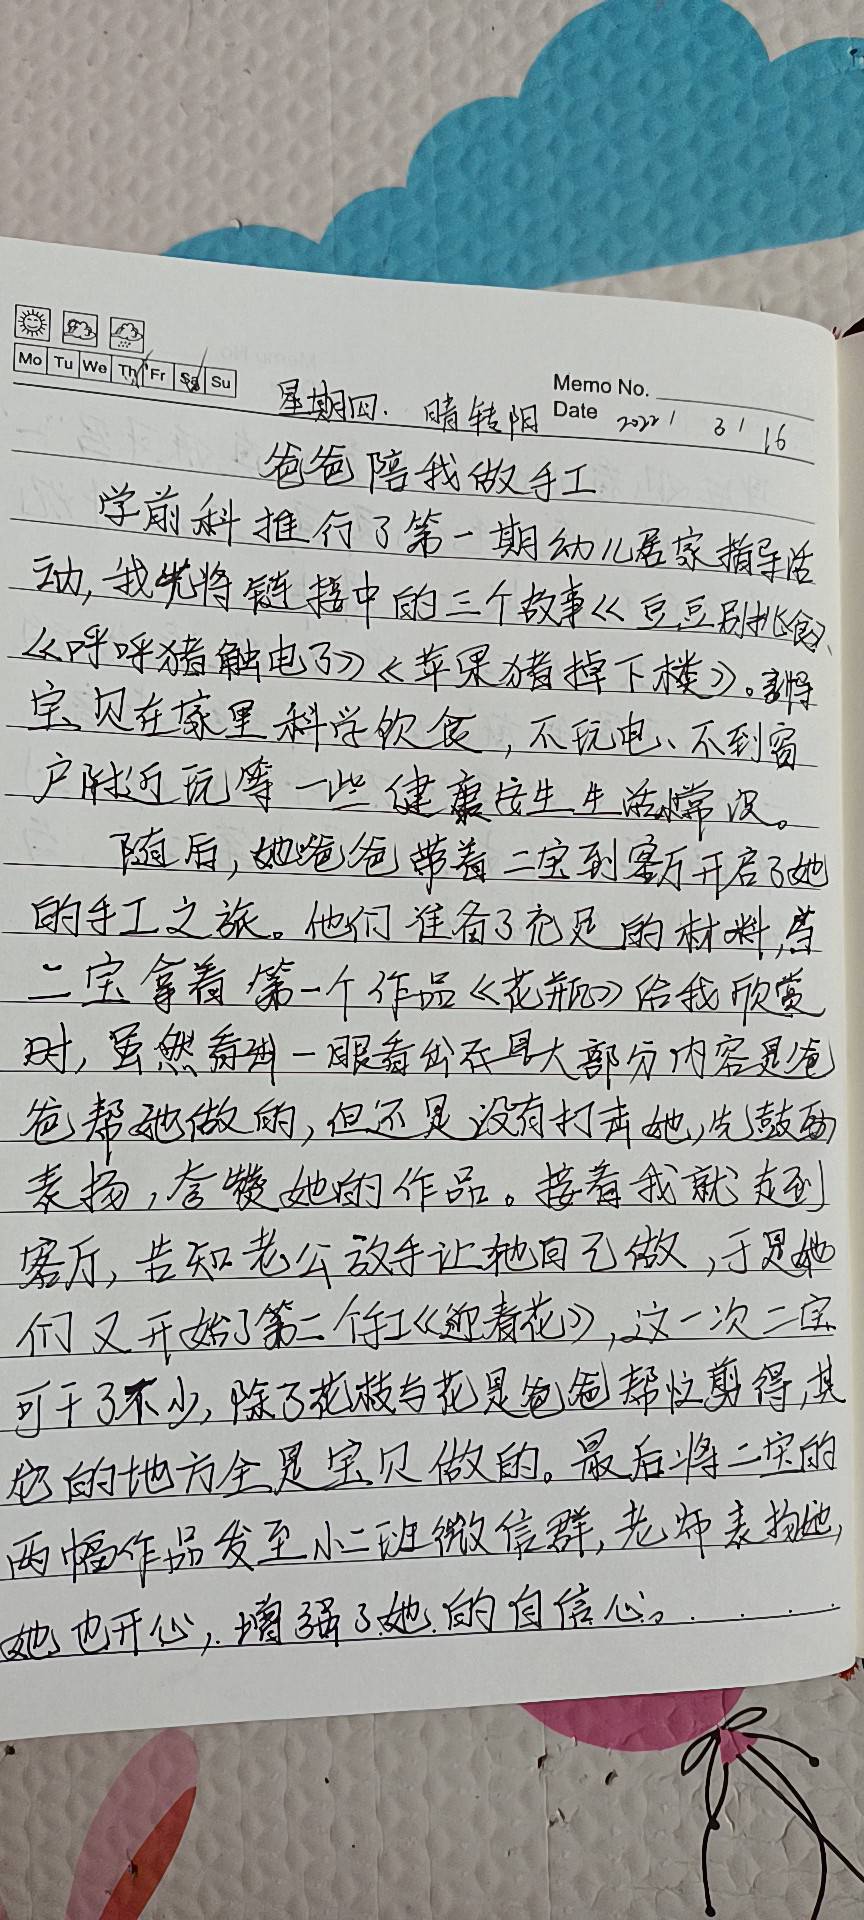 Mo Tu We Th Fr Sa Su
Memo No.
星期四. 晴转阳 Date 2022 / 3 / 16
爸爸陪我做手工
学前科推行了第一期幼儿居家指导活
动,我先将链接中的三个故事《豆豆别挑食》、
《呼呼猪触电了》《苹果猪掉下楼》。
宝贝在家里科学饮食,不玩电、不到窗
户附近玩等一些健康生生活常识。
随后,她爸爸带着二宝到客厅开启了她
的手工之旅。他们准备了充足的材料,当
二宝拿着第一个作品《花瓶》给我欣赏
时,虽然看到一眼看出不是大部分内容是爸
爸帮她做的,但还是没有打击她,先鼓励
表扬,夸赞她的作品。接着我就走到
客厅,告知老公放手让她自己做,于是她
们又开始了第二个手工《迎春花》,这一次二宝
可干了不少,除了花枝与花是爸爸帮忙剪得,其
它的地方全是宝贝做的。最后将二宝的
两幅作品发至小二班微信群,老师表扬她,
她也开心,增强了她的自信心。......